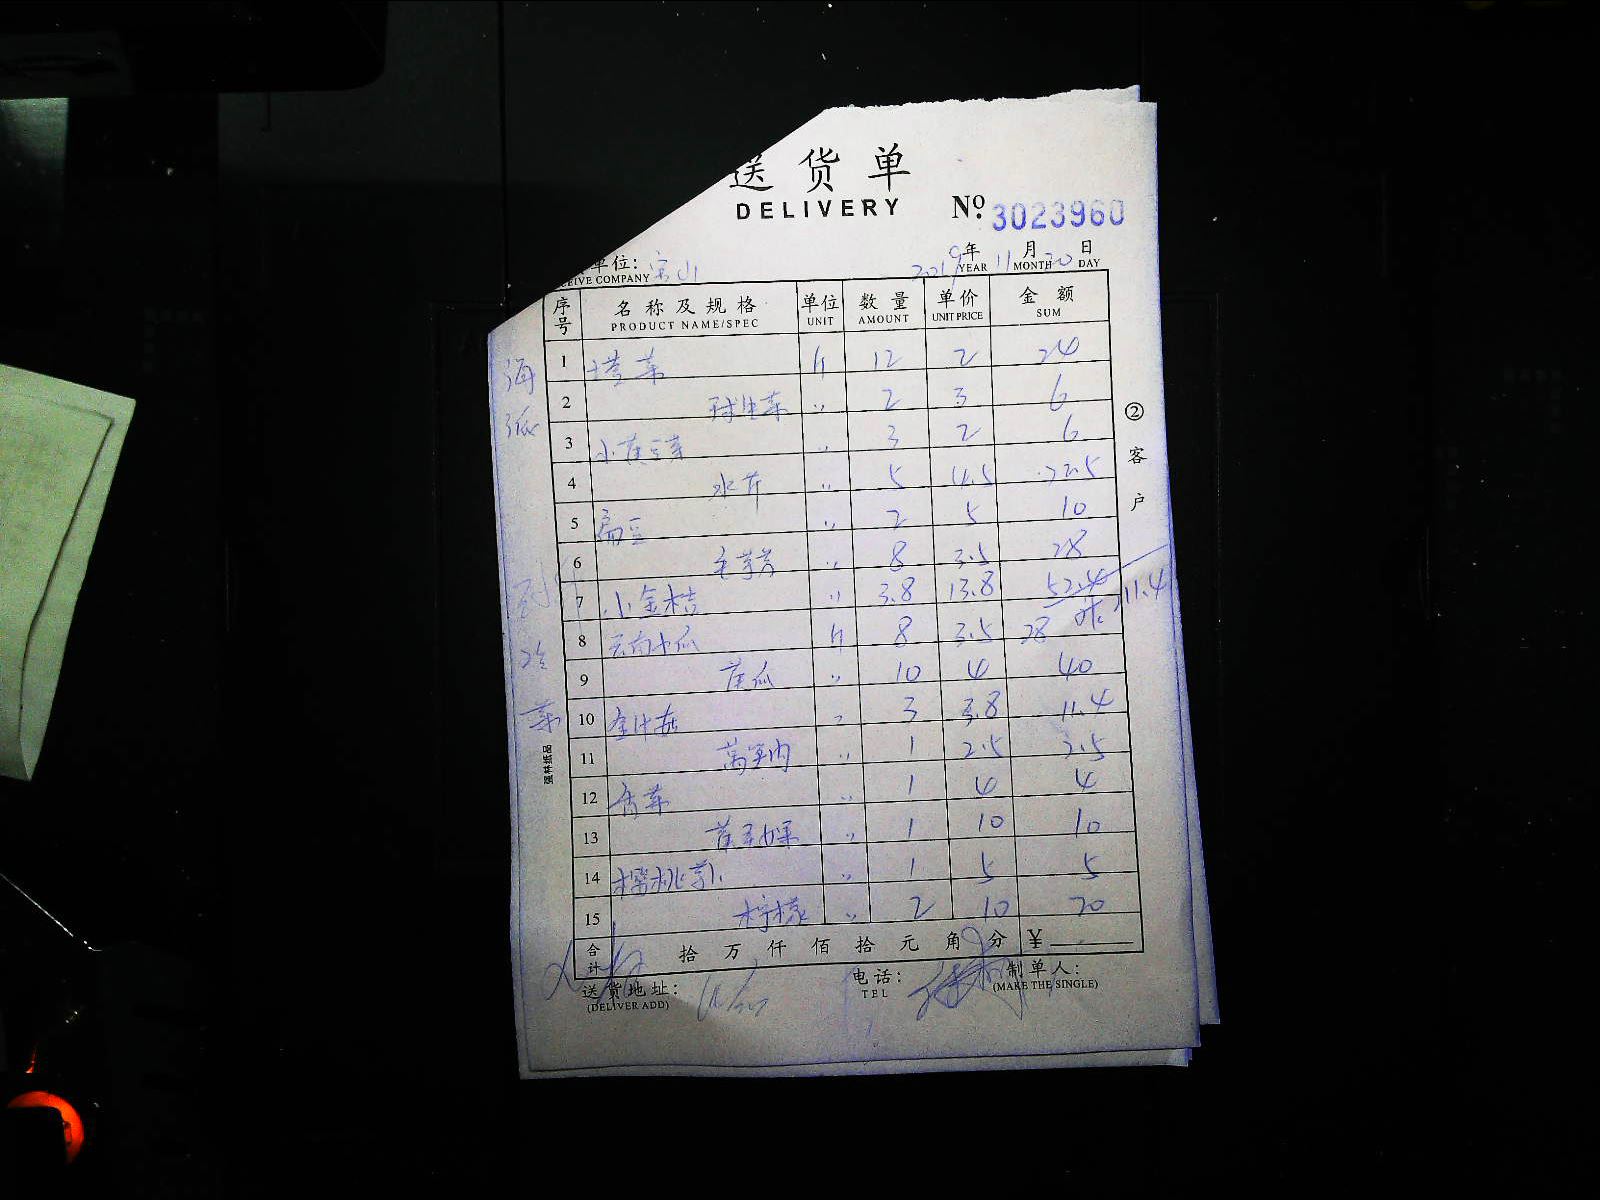 送货单
DELIVERY
№ 3023960
单位: 宝山
CEIVE COMPANY
2019年 11月 30日
YEAR MONTH DAY
序号 名称及规格 单位 数量 单价 金额
PRODUCT NAME/SPEC UNIT AMOUNT UNIT PRICE SUM
1 塔菜 斤 12 2 24
2 球生菜 〃 2 3 6
3 小黄豆芽 〃 3 2 6
4 水芹 〃 5 4.5 22.5
5 扁豆 〃 2 5 10
6 毛芋艿 〃 8 3.5 28
7 小金桔 〃 3.8 13.8 52.4
211.4
8 云南小瓜 斤 8 3.5 28
9 黄瓜 〃 10 4 40
10 〃 3 3.8 11.4
11 莴笋肉 〃 1 2.5 2.5
12 香菜 〃 1 4 4
13 〃 1 10 10
14 樱桃萝卜 〃 1 5 5
15 柠檬 〃 2 10 20
合计 拾 万 仟 佰 拾 元 角 分 ¥
送货地址:
(DELIVER ADD)
电话:
TEL
制单人:
(MAKE THE SINGLE)
②客户
海
派
冷
菜
强林纸品